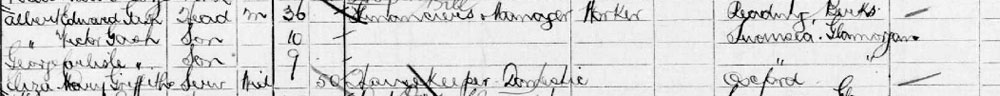 Albert Edward Gash Head M 36 Financier's Manager Worker Reading Berks
" Victor Gash Son 10 Swansea Glamorgan
George " Son 9 "
Eliza Mary Griffiths Serv Wid 50 Housekeeper Domestic Oxford